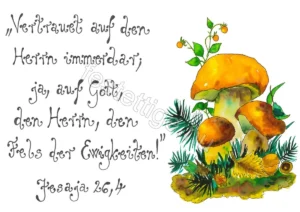 „Vertrauet auf den
Herrn immerdar;
ja, auf Gott
den Herrn, den
Fels der Ewigkeiten!"
Jesaja 26,4